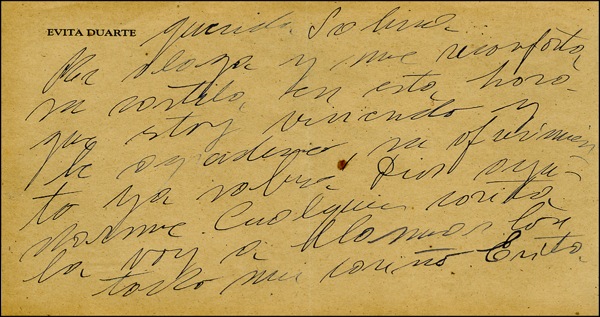 EVITA DUARTE
querida Sabina
Me alaga y me reconforta
su cartita, en esta hora
que estoy viviendo y
le agradezco su ofrecimien
to ya sabra Dios ayu-
darme. Cualquier cosita
la voy a llamar Con
todo mi cariño Evita